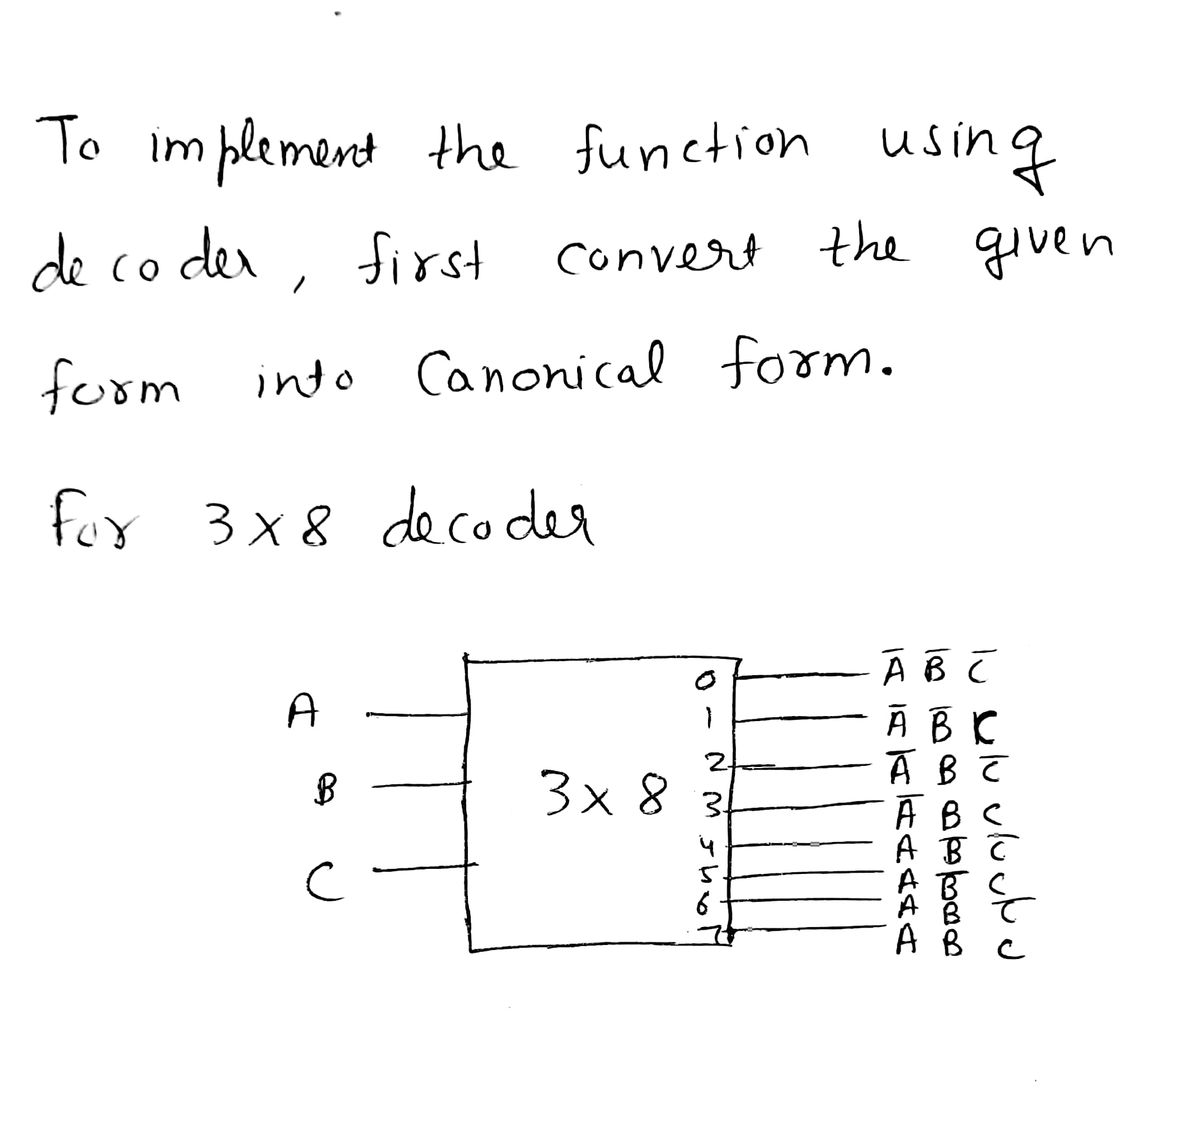 To implement the function using
decoder, first convert the given
form into Canonical form.
For 3 x 8 decoder
A
B
C
3 x 8
0 A̅ B̅ C̅
1 A̅ B̅ C
2 A̅ B C̅
3 A̅ B C
4 A B̅ C̅
5 A B̅ C
6 A B C̅
7 A B C